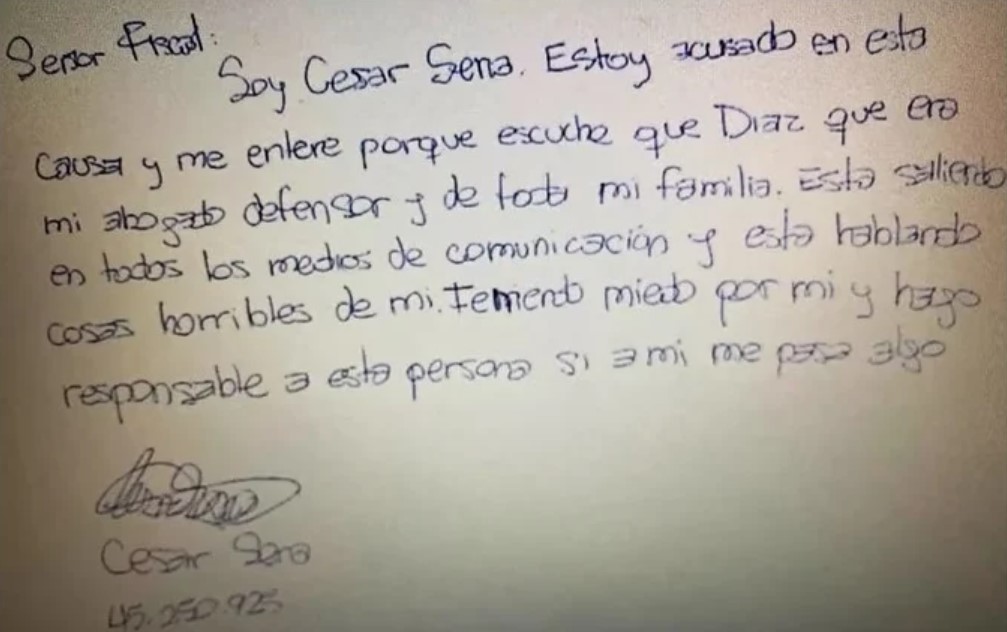 Señor Fiscal:
Soy Cesar Sena. Estoy acusado en esta
causa y me entere porque escuche que Diaz que era
mi abogado defensor y de toda mi familia. Esta saliendo
en todos los medios de comunicación y esta hablando
cosas horribles de mi. Temiendo miedo por mi y hago
responsable a esta persona si a mi me pasa algo
Cesar Sena
45.250.925